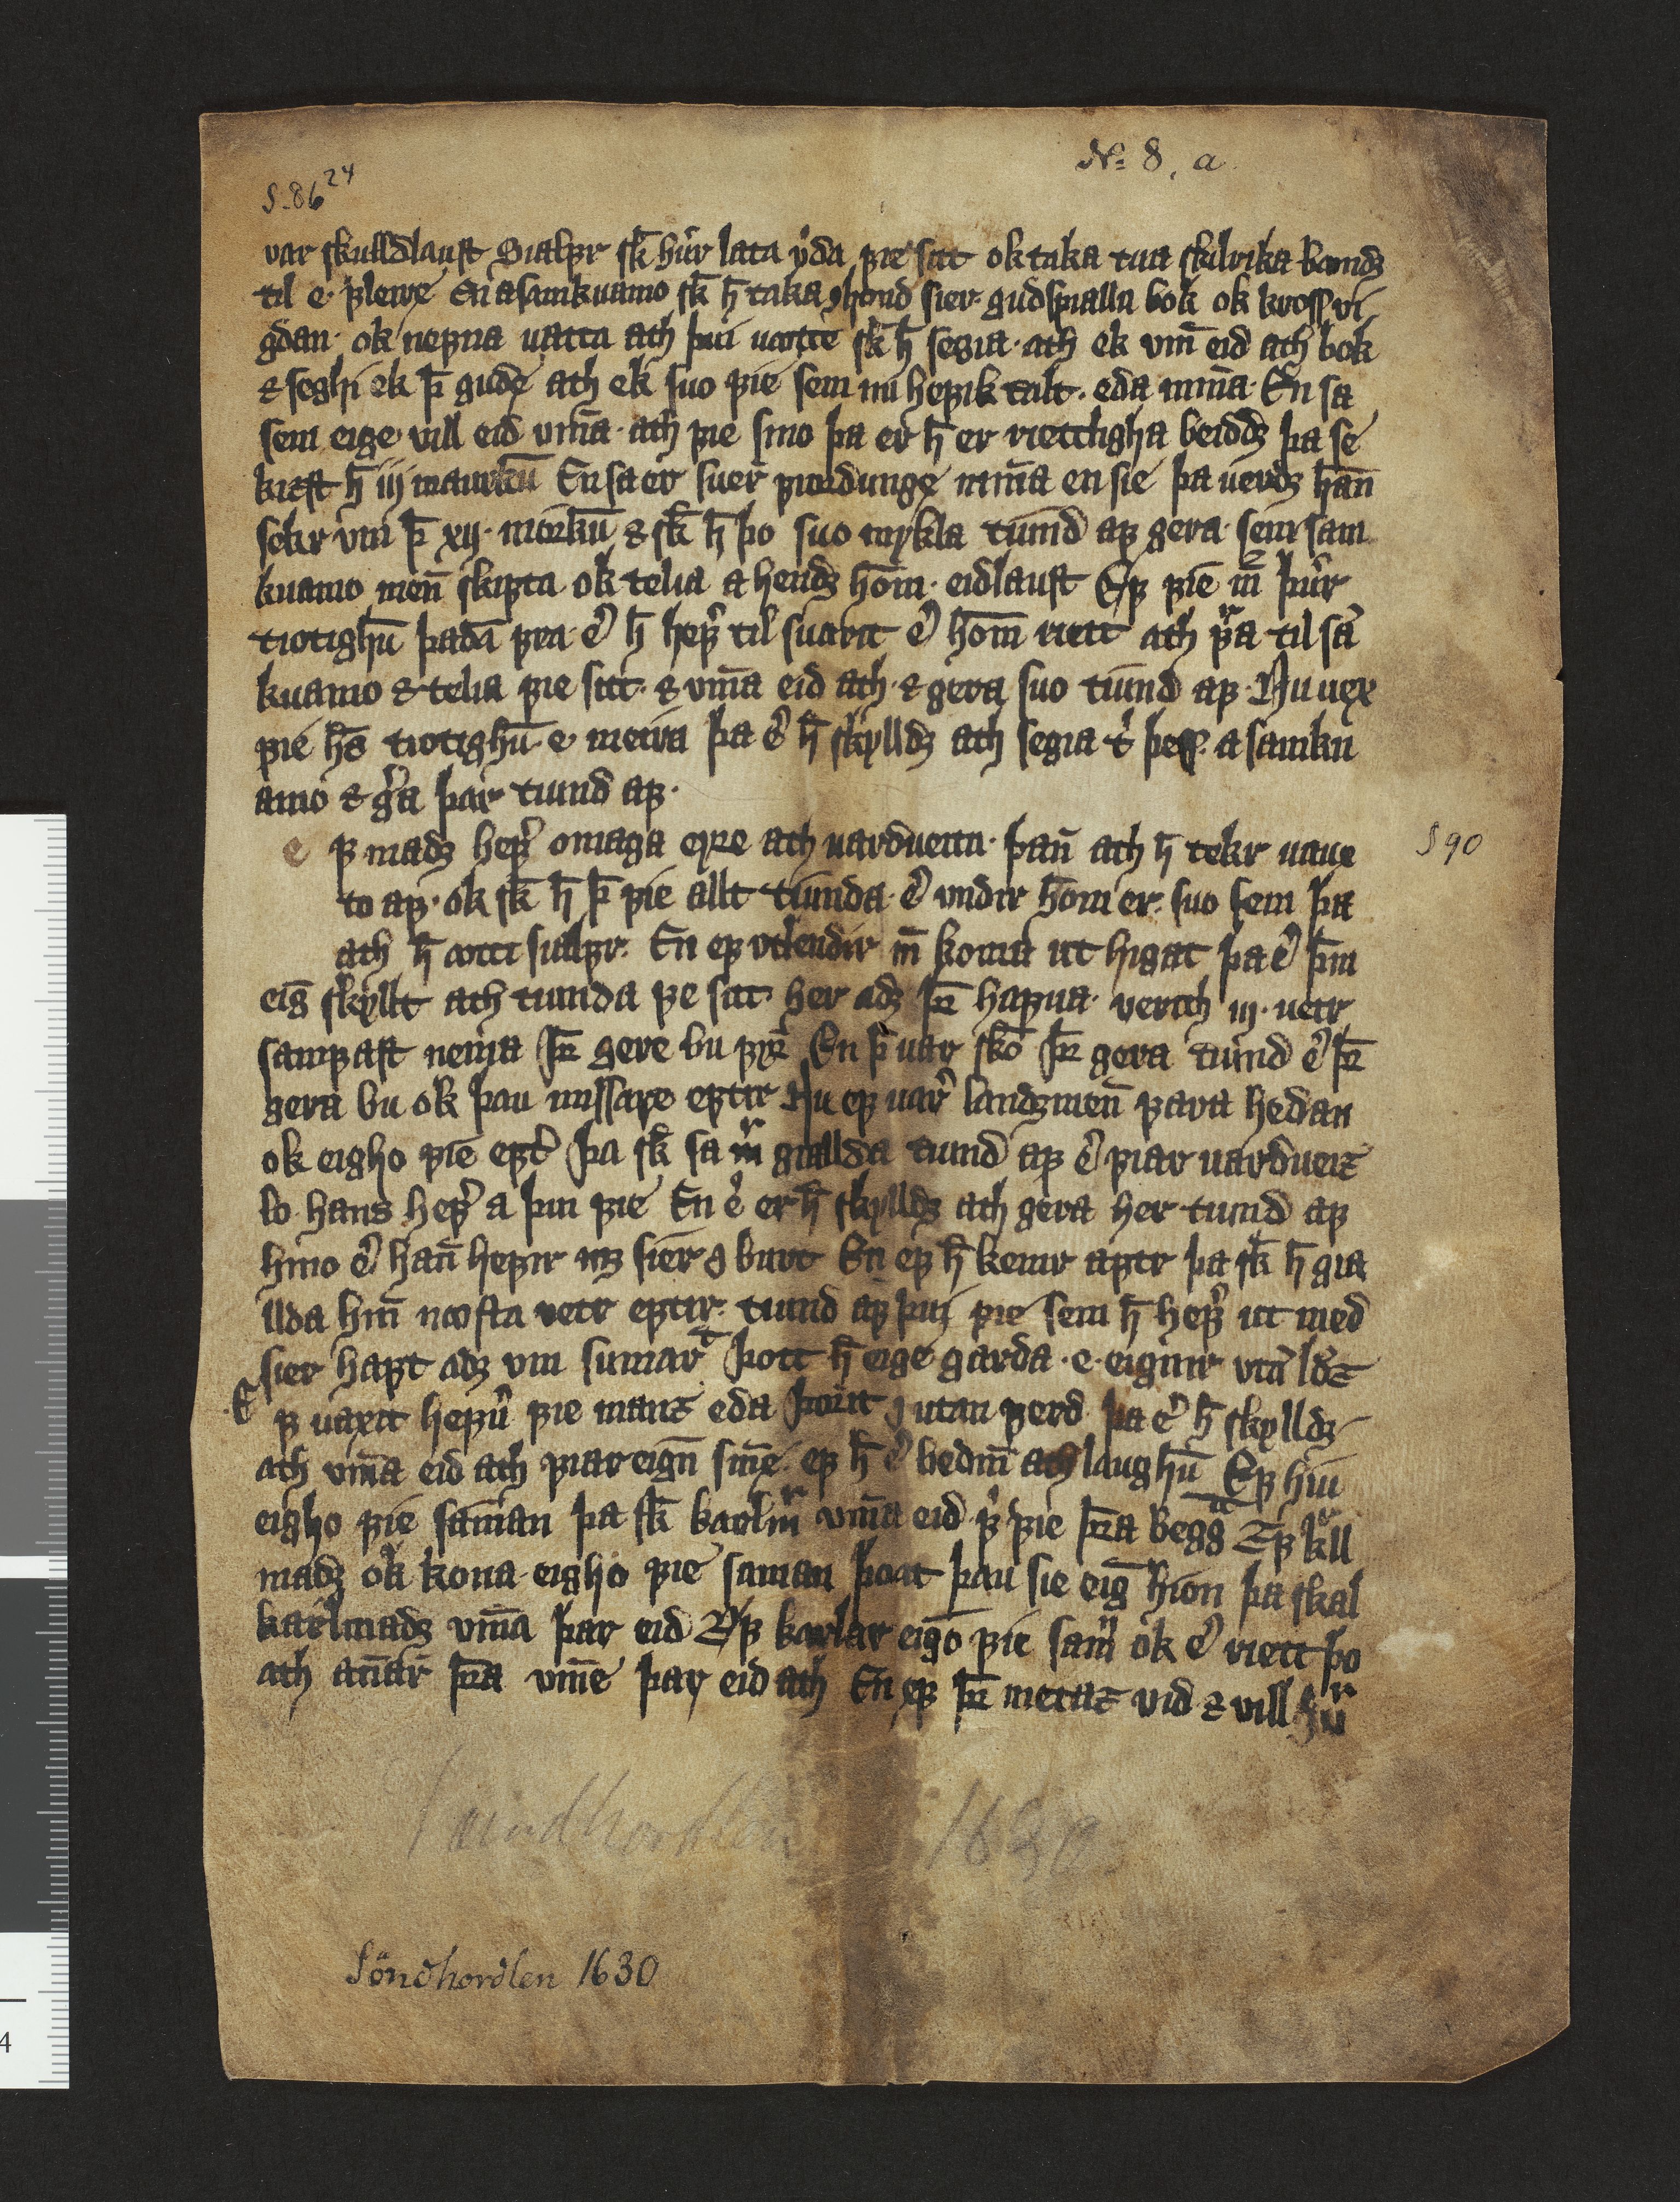 No: 8, a
S. 86 24
var skulldlaust Sialfr sk huer lata uirda fie sitt ok taka tua skilrika bonndr
til e. fleire En a samkuamo sk h̄ taka j hond sier gudspialla bok ok kross vi
gdan ok nefna uatta ath þui uotte sk h̄ segia ath ek vin̄ eid ath bok
& seghi ek þ̄ gude ath ek suo fie sem nu hefik talt. eda minna En sa
sem eige vill eid vin̄a ath fie sino þa er h̄ er riettligha beiddr þa se
kizst h̄ iij maurkū En sa er suer̄ fiordunge min̄a en sie þa uerdr han̄
sekr vm þ̄ xij morkū & sk h̄ þo suo mykla tiund af gera sem sam
kuamo men̄ skipta ok telia a hendr hom eidlaust Ef fie m̄ þuer
tiotighū þadan fra er h̄ hefer til suarit er hom riett ath fara til sā
kuamo & telia fie sitt & vin̄a eid ath & gera suo tiund af Nu uex
fie hs̄ tiotighū e meira þa er h̄ skylldr ath segia til þess a samku
amo & gera þar tiund af
e f madr hefer omaga eyre ath uarduetta þan̄ ath h̄ tekr uauxe
to af ok sk h̄ þ̄ fie allt tiunda er vndir hom er suo sem þa
ath h̄ ætti sialfr En ef vtlendir m̄ koma ut higat þa er þm
eig skyllt ath tiunda fe sitt her adr þr̄ hafua verith iij uetr
samfast nema þr̄ gere bu fyr En þ̄ uar sko þr̄ gera tiund er þr̄
gera bu ok þau missare eptir Nu ef uarer landzmen̄ fara hedan
ok eigho fie epter þa sk sa m̄ gialda tiund af er fiar uarduerzs
lo hans hefer a þui fie En er er h̄ skylldr ath gera her tiund af
hino er han̄ hefir mz sier j burt En ef h̄ kemr aptr þa sk h̄ gia
llda hin̄ næsta vetr eptir tiund af þui fie sem h̄ hefer ut med
sier haft adr vm sumarit Þott h̄ eige garda e eignir
Ef uaxit hefer fie manz eda þorit j utan ferd þa er h̄ skylldr
ath vin̄a eid ath fiar eign sin̄e ef h̄ er bedin̄ ath laughū Ef hiu
eigho fie saman þa sk karlm̄ vin̄a eid fyrir fie þra begga Ef kll
madr ok kona eigho fie saman þoat þau sie eig hion þa skal
karlmadr vin̄a þar eid Ef karlar eigo fie sam̄ ok er riett þo
ath an̄ar þra vin̄e þar eid ath En ef þr̄ metaz vid & vill hu
S 90
Sundhordlen 1630
Söndhordlen 1630
4